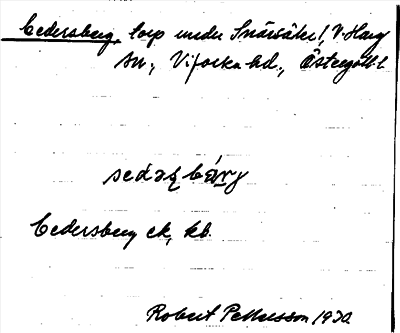 Cedersberg, torp under Snåvsäter!, V. Harg
sn, Vifolka hd., Östergötl. l.
sedaʂbáry
Cedersberg ek, kb.
Robert Pettersson 1930